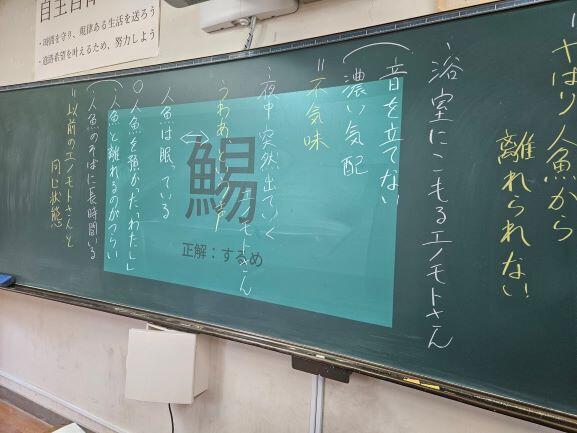 自主自律
・時間を守り、規律ある生活を送ろう
・進路希望を叶えるため、努力しよう
＝やはり人魚から
離れられない
・浴室にこもるエノモトさん
音を立てない
濃い気配
＝不気味
・夜中 突然出ていくエノモトさん
うわあ
人魚は眠っている
○人魚を預かた「わたし」
人魚と離れるのがつらい
人魚のそばに長時間いる
＝以前のエノモトさんと
同じ状態
鯣
正解：するめ